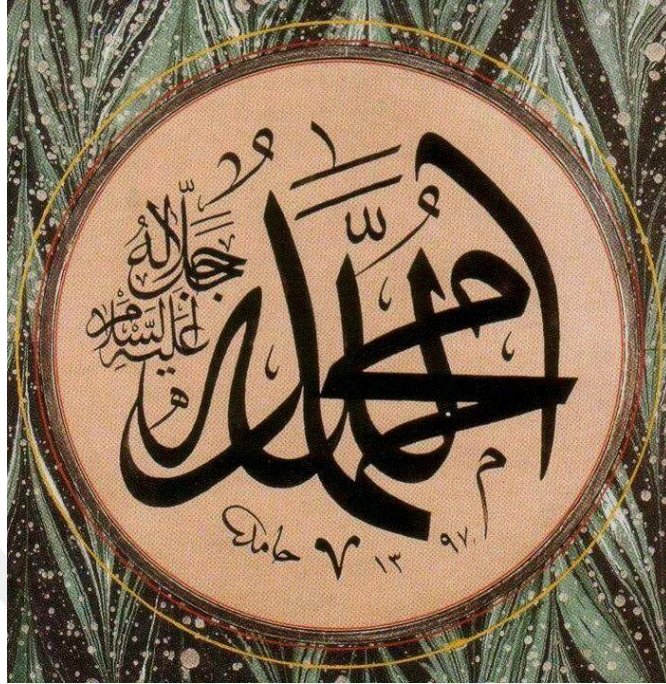 الله
محمد
جل جلاله
عليه السلام
حامد ١٣٩٧